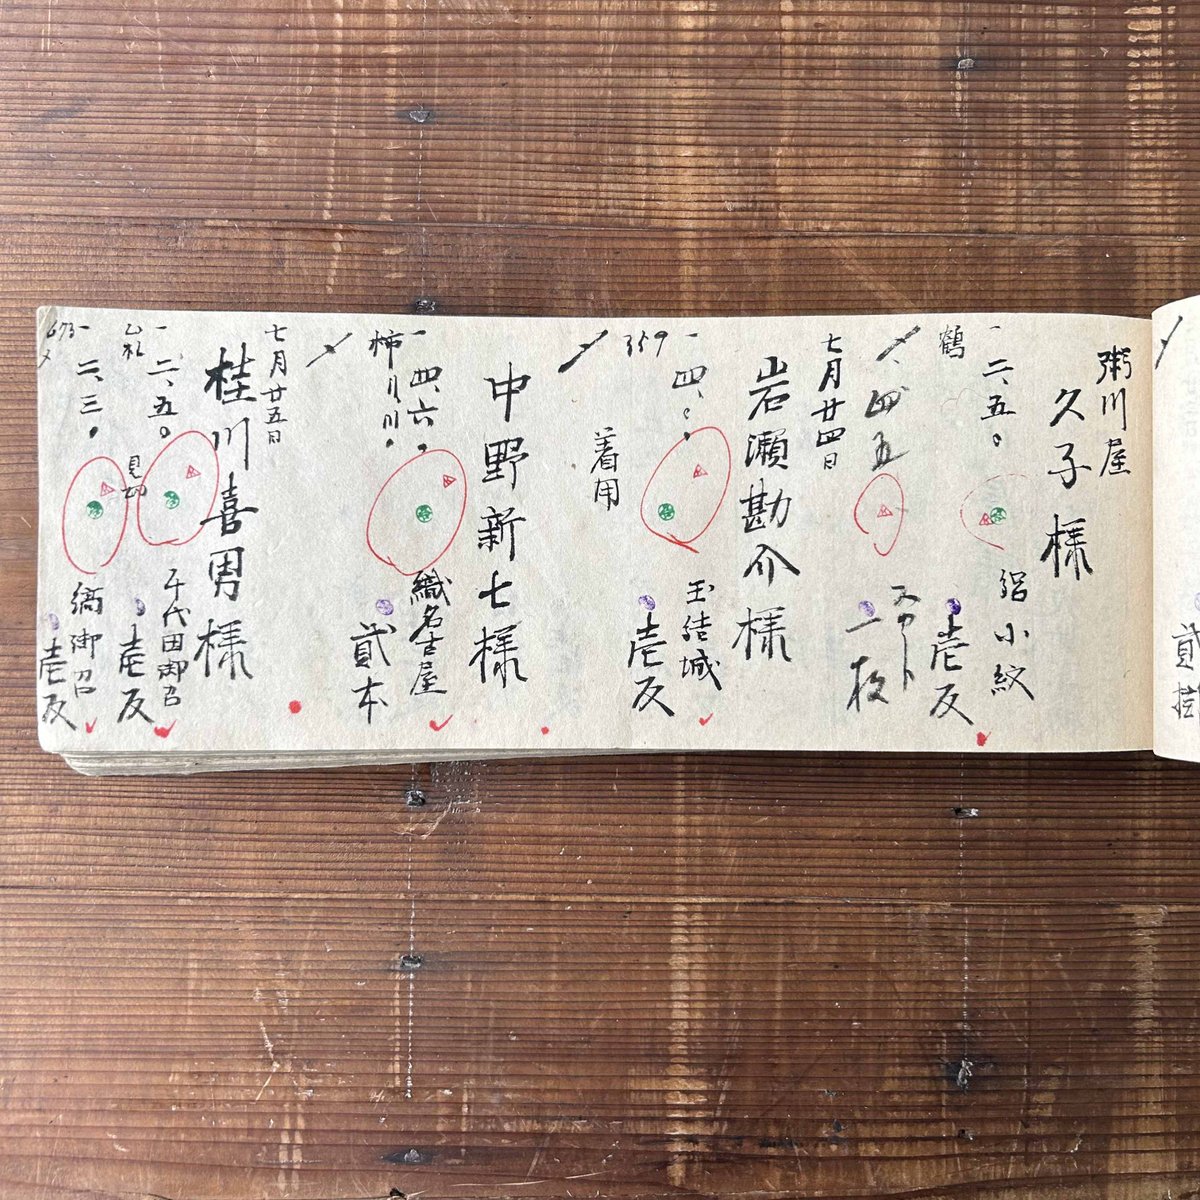 粥川屋
久子様
一二、五〇
鶴
絽小紋
壱反
、四五
スカート
一枚
七月廿四日
岩瀬勘介様
一四、〇、
359
玉結城
壱反
着用
中野新七様
一四、六、
柿川川、
織名古屋
貳本
七月廿五日
桂川喜男様
一二、五〇
乙札
見切
千代田御召
壱反
一二、三、
673
縞御召
壱反
貳